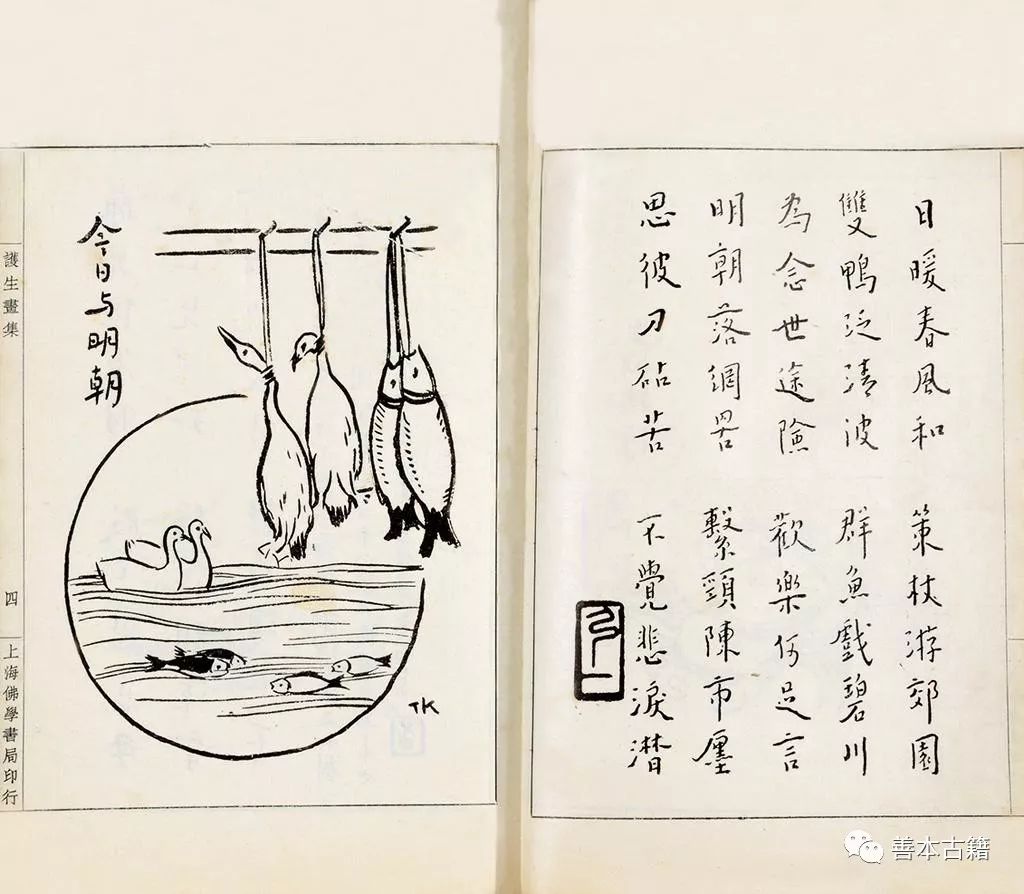 日暖春風和 策杖游郊園
雙鴨泛清波 群魚戲碧川
為念世途險 歡樂何足言
明朝落網罟 繫頸陳市廛
思彼刀砧苦 不覺悲淚潸
弘一
今日与明朝
TK
護生畫集
四
上海佛學書局印行
善本古籍